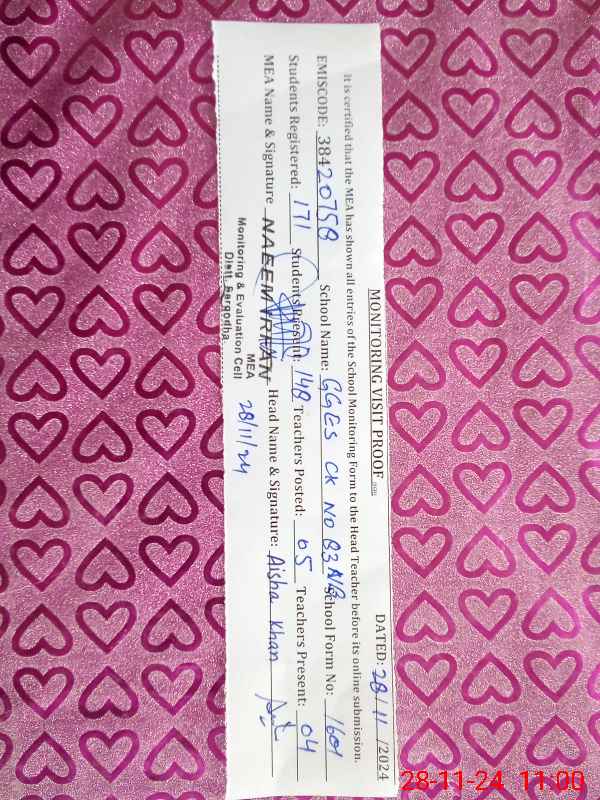 MONITORING VISIT PROOF DATED: 28/11/2024
It is certified that the MEA has shown all entries of the School Monitoring Form to the Head Teacher before its online submission.
EMISCODE: 38420758 School Name: GGES Ck No 83 NB School Form No: 1601
Students Registered: 171 Students Present: 148 Teachers Posted: 05 Teachers Present: 04
MEA Name & Signature NAEEM IRFAN Head Name & Signature: Aisha Khan
MEA
Monitoring & Evaluation Cell 28/11/24
Distt. Sargodha.
28-11-24 11:00